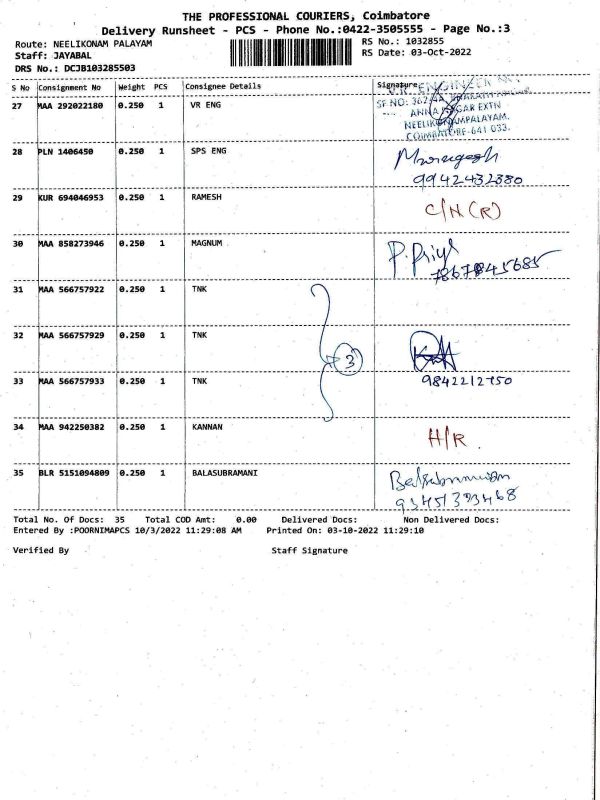 THE PROFESSIONAL COURIERS, Coimbatore
Delivery Runsheet - PCS - Phone No.:0422-3505555 - Page No.:3
Route: NEELIKONAM PALAYAM
RS No.: 1032855
Staff: JAYABAL
RS Date: 03-Oct-2022
DRS No.: DCJB103285503
S No Consignment No Weight PCS Consignee Details Signature
27 MAA 292022180 0.250 1 VR ENG
ENGINEERING
SF NO:
ANNA NAGAR EXTN
NEELIKONAMPALAYAM,
COIMBATORE-641 033.
28 PLN 1406450 0.250 1 SPS ENG
Murugesh
9942432380
29 KUR 694046953 0.250 1 RAMESH
C/N (R)
30 MAA 858273946 0.250 1 MAGNUM
P. Priya
31 MAA 566757922 0.250 1 TNK
32 MAA 566757929 0.250 1 TNK
3
33 MAA 566757933 0.250 1 TNK
9842212750
34 MAA 942250382 0.250 1 KANNAN
H/R.
35 BLR 5151094809 0.250 1 BALASUBRAMANI
Balasubramanian
Total No. Of Docs: 35 Total COD Amt: 0.00 Delivered Docs: Non Delivered Docs:
Entered By :POORNIMAPCS 10/3/2022 11:29:08 AM Printed On: 03-10-2022 11:29:10
Verified By Staff Signature